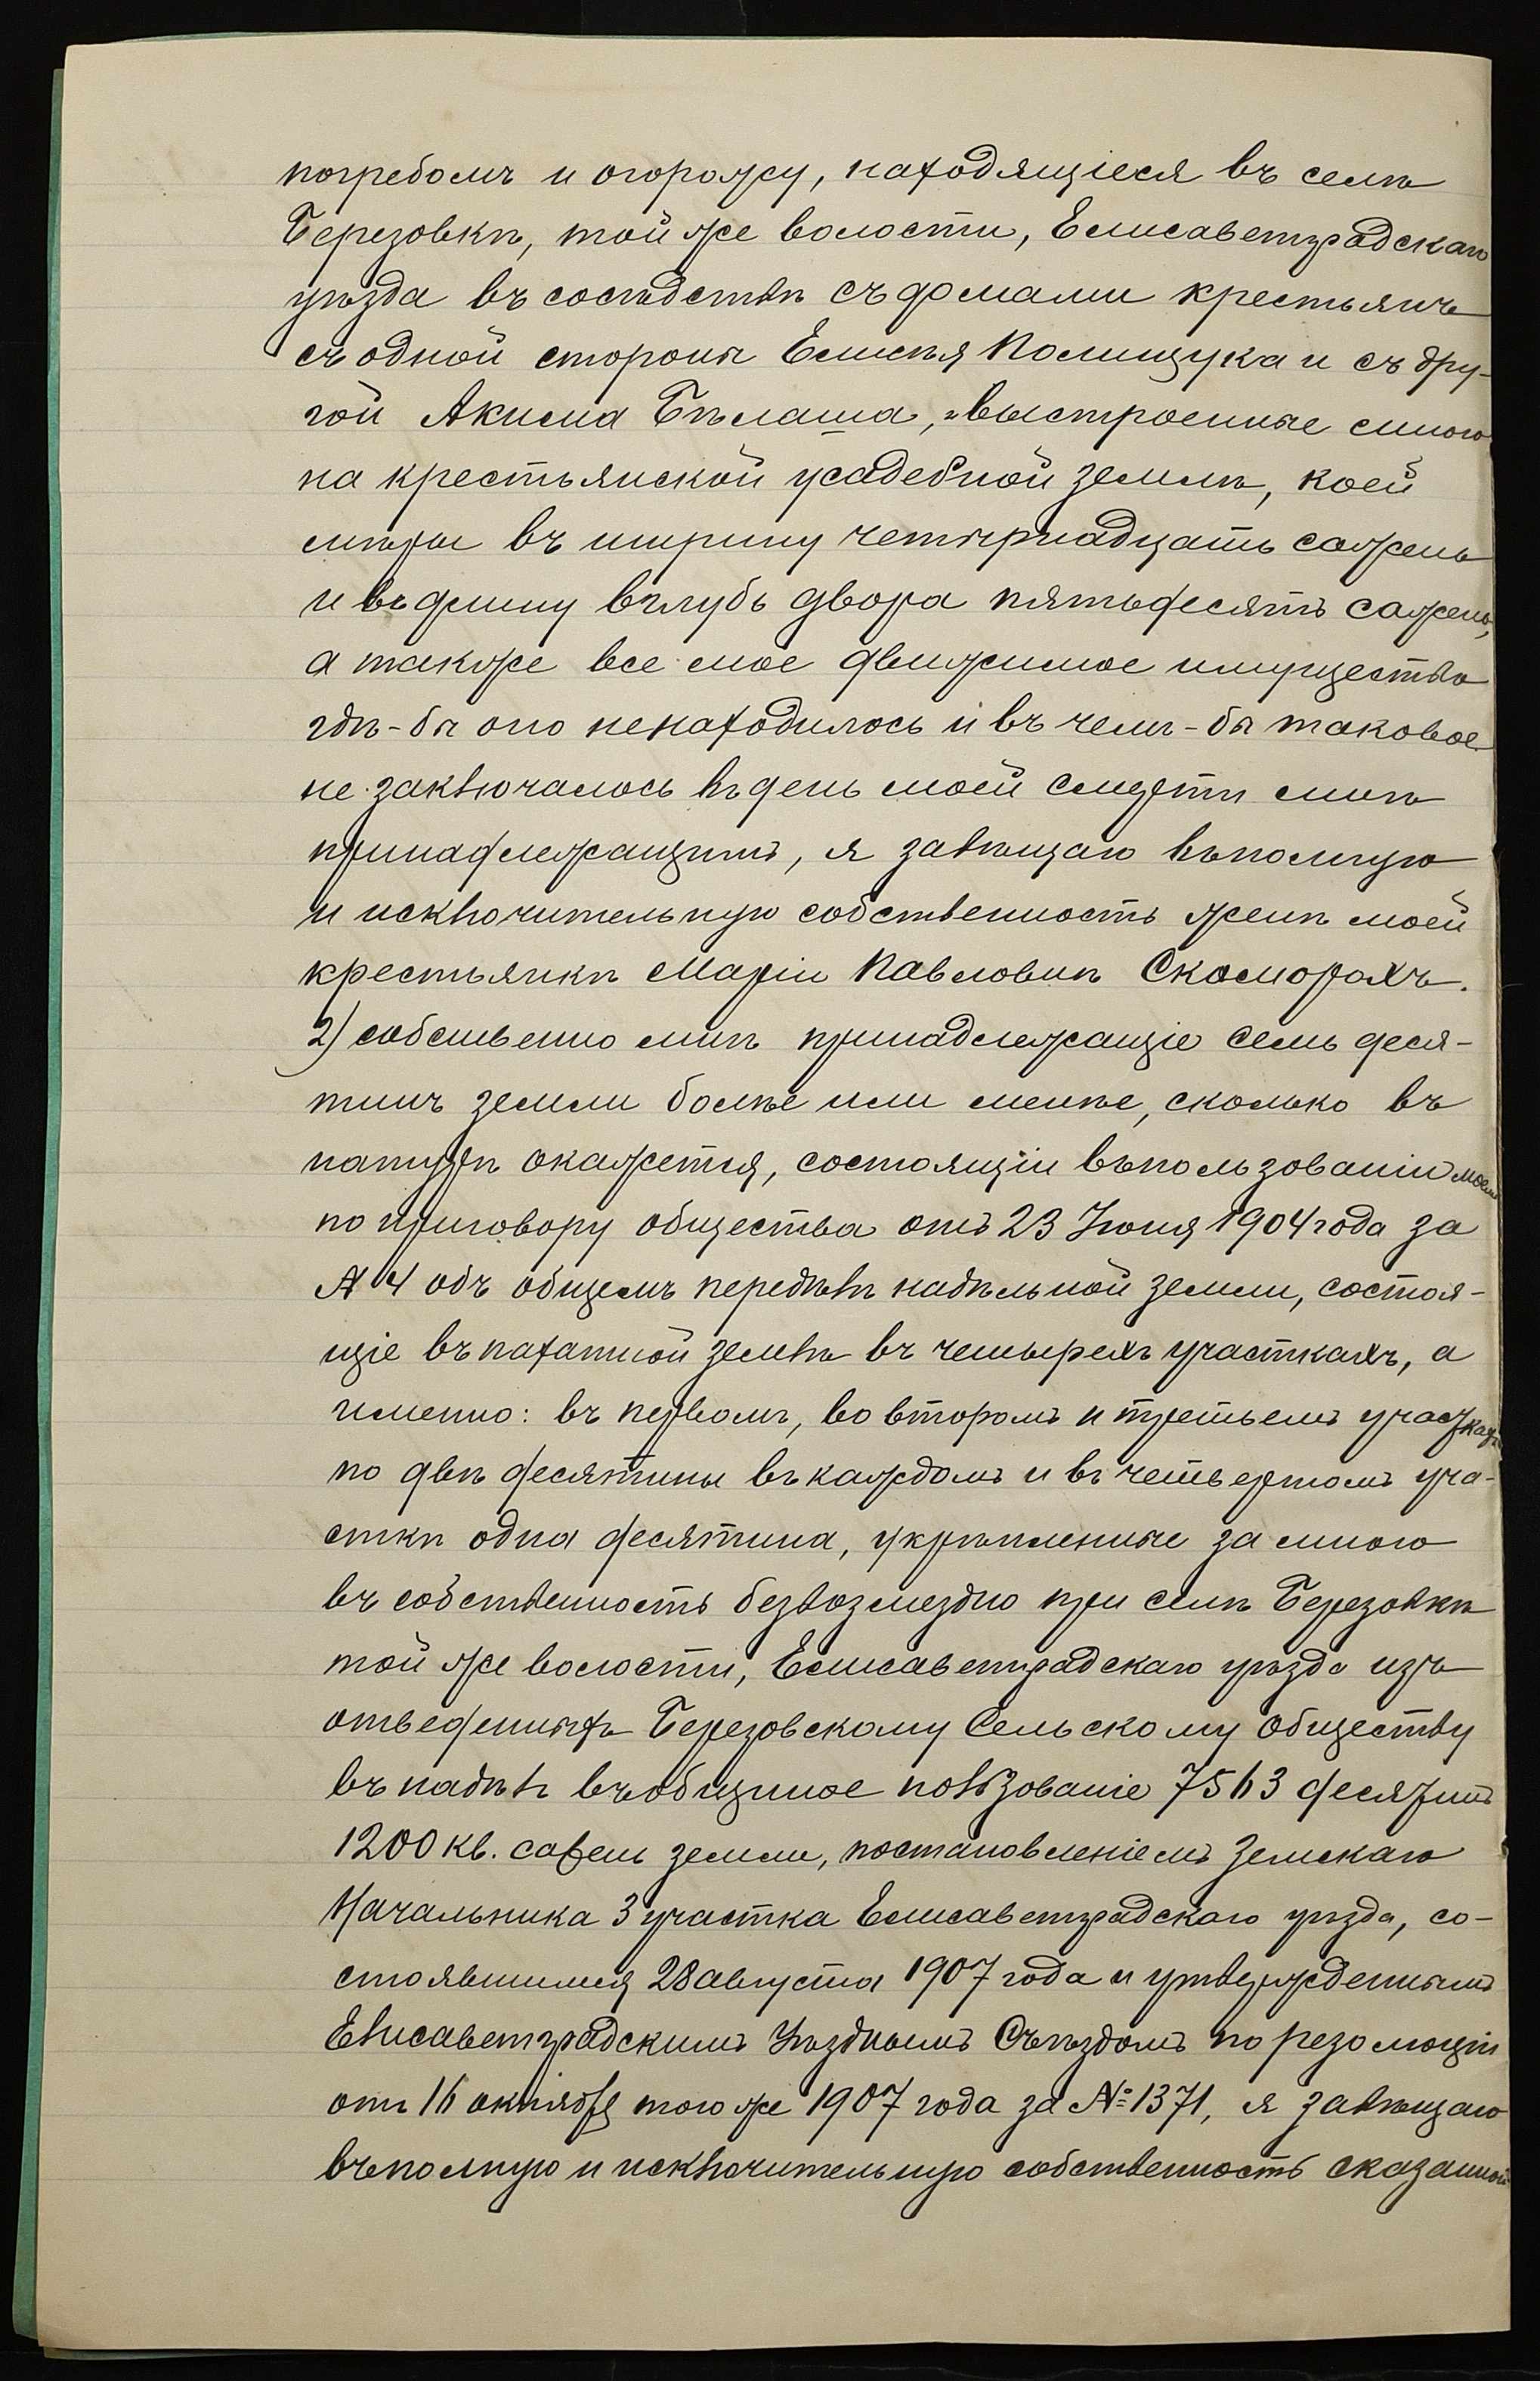 погребомъ и огорожу, находящіеся въ селѣ
Березовкѣ, той же волости, Елисаветградскаго
уѣзда въ сосѣдствѣ съ домами крестьянъ
съ одной стороны Елисѣя Полищука и съ дру-
гой Акима Бѣлаша, выстроенные мною
на крестьянской усадебной землѣ, коей
мѣры въ ширину четырнадцать сажень
и въ длину вглубь двора пятьдесятъ сажень,
а также все мое движимое имущество
гдѣ-бы оно не находилось и въ чемъ-бы таковое
не заключалось въ день моей смерти мнѣ
принадлежащимъ, я завѣщаю въ полную
и исключительную собственность женѣ моей
крестьянкѣ Маріи Павловнѣ Скоморохъ.
2) собственно мнѣ принадлежащіе семь деся-
тинъ земли болѣе или менѣе, сколько въ
натурѣ окажется, состоящіи въ пользованіи моемъ
по приговору общества отъ 23 Іюня 1904 года за
№ 4 объ общемъ передѣлѣ надѣльной земли, состоя-
щіе въ пахатной землѣ въ четырехъ участкахъ, а
именно: въ первомъ, во второмъ и третьемъ участкахъ
по двѣ десятины въ каждомъ и въ четвертомъ уча-
сткѣ одна десятина, укрѣпленные за мною
въ собственность безвозмездно при селѣ Березовкѣ
той же волости, Елисаветградскаго уѣзда изъ
отведенныхъ Березовскому Сельскому Обществу
въ надѣлъ въ общинное пользованіе 7563 десятинъ
1200 кв. сажень земли, постановленіемъ Земскаго
Начальника 3 участка Елисаветградскаго уѣзда, со-
стоявшимся 28 августа 1907 года и утвержденнымъ
Елисаветградскимъ Уѣзднымъ Съѣздомъ по резолюціи
отъ 16 октября того же 1907 года за №1371, я завѣщаю
въ полную и исключительную собственность сказанной